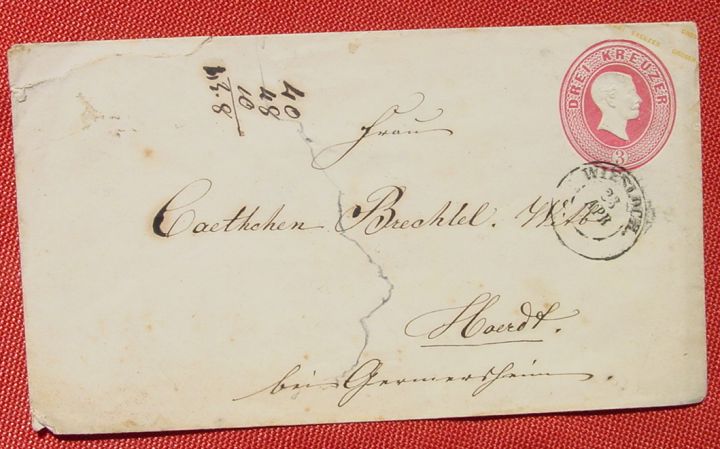 DREI KREUZER
3
WIESLOCH.
23
APR
40
48
10
Frau
Caethchen Brechtel. Wtb.
Hoerdt.
bei Germersheim.